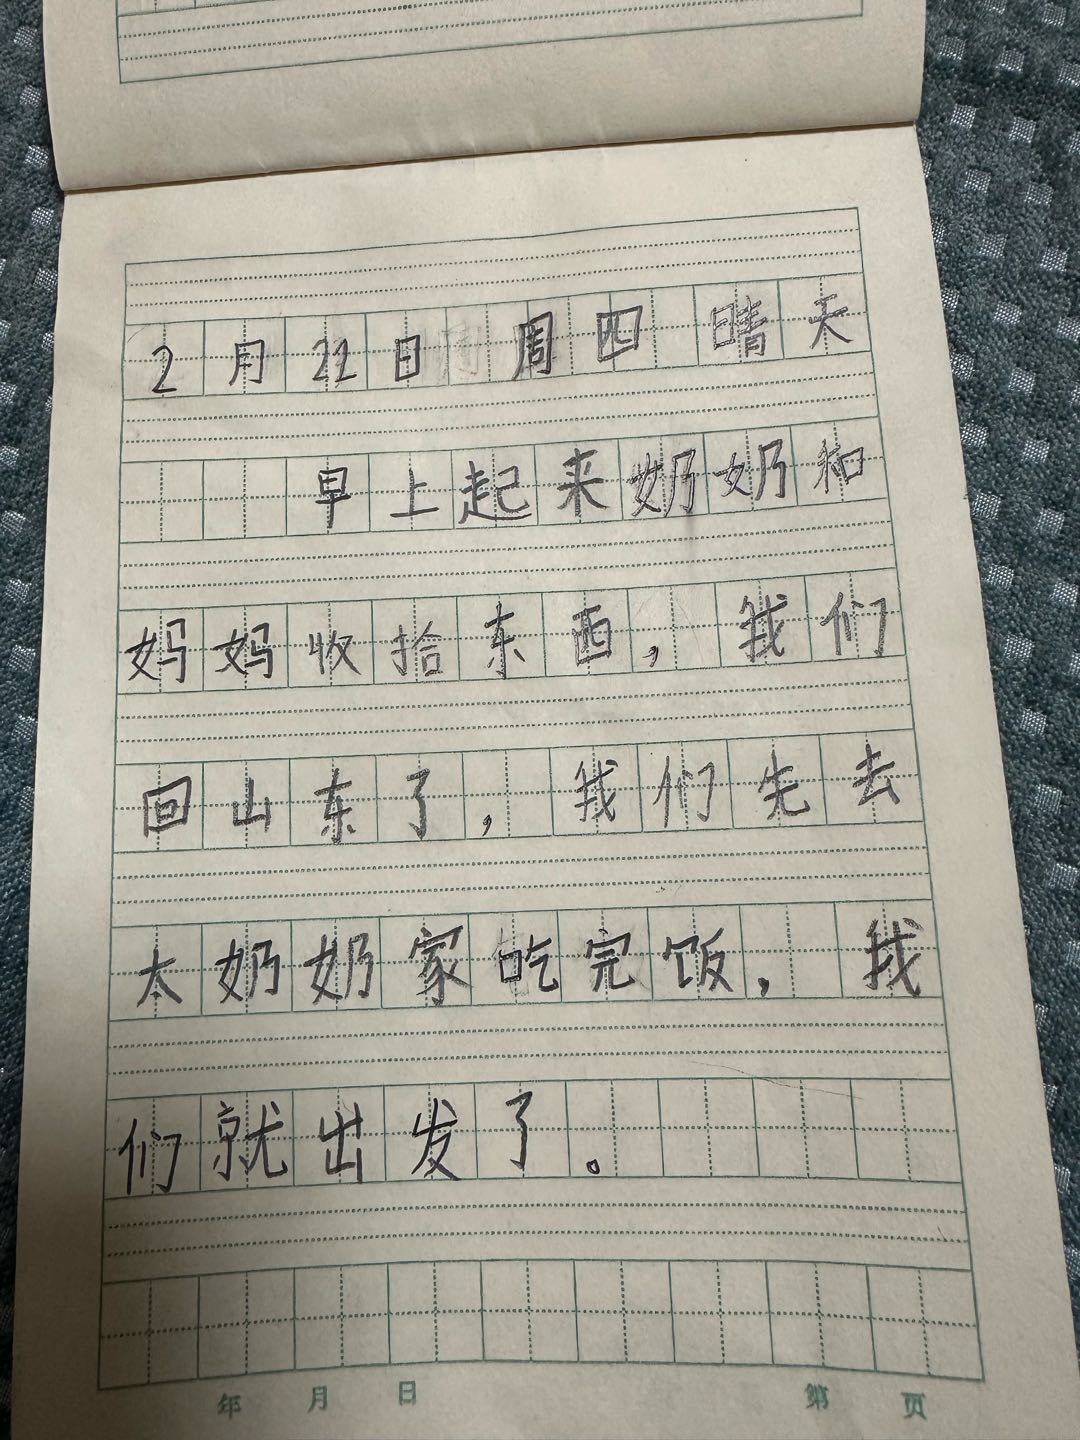 2月21日 周四 晴天
早上起来奶奶和
妈妈收拾东西，我们
回山东了，我们先去
太奶奶家吃完饭，我
们就出发了。
年 月 日 第 页